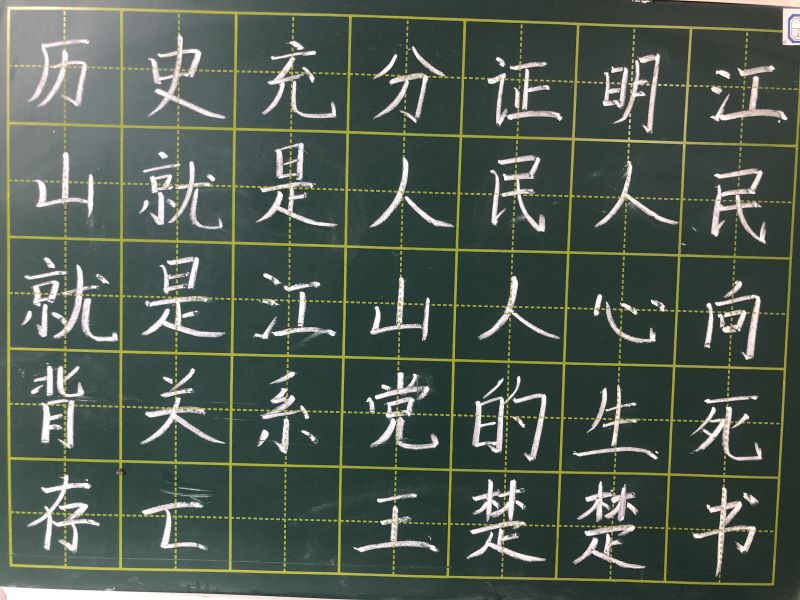 历史充分证明江
山就是人民人民
就是江山人心向
背关系党的生死
存亡 王楚楚书